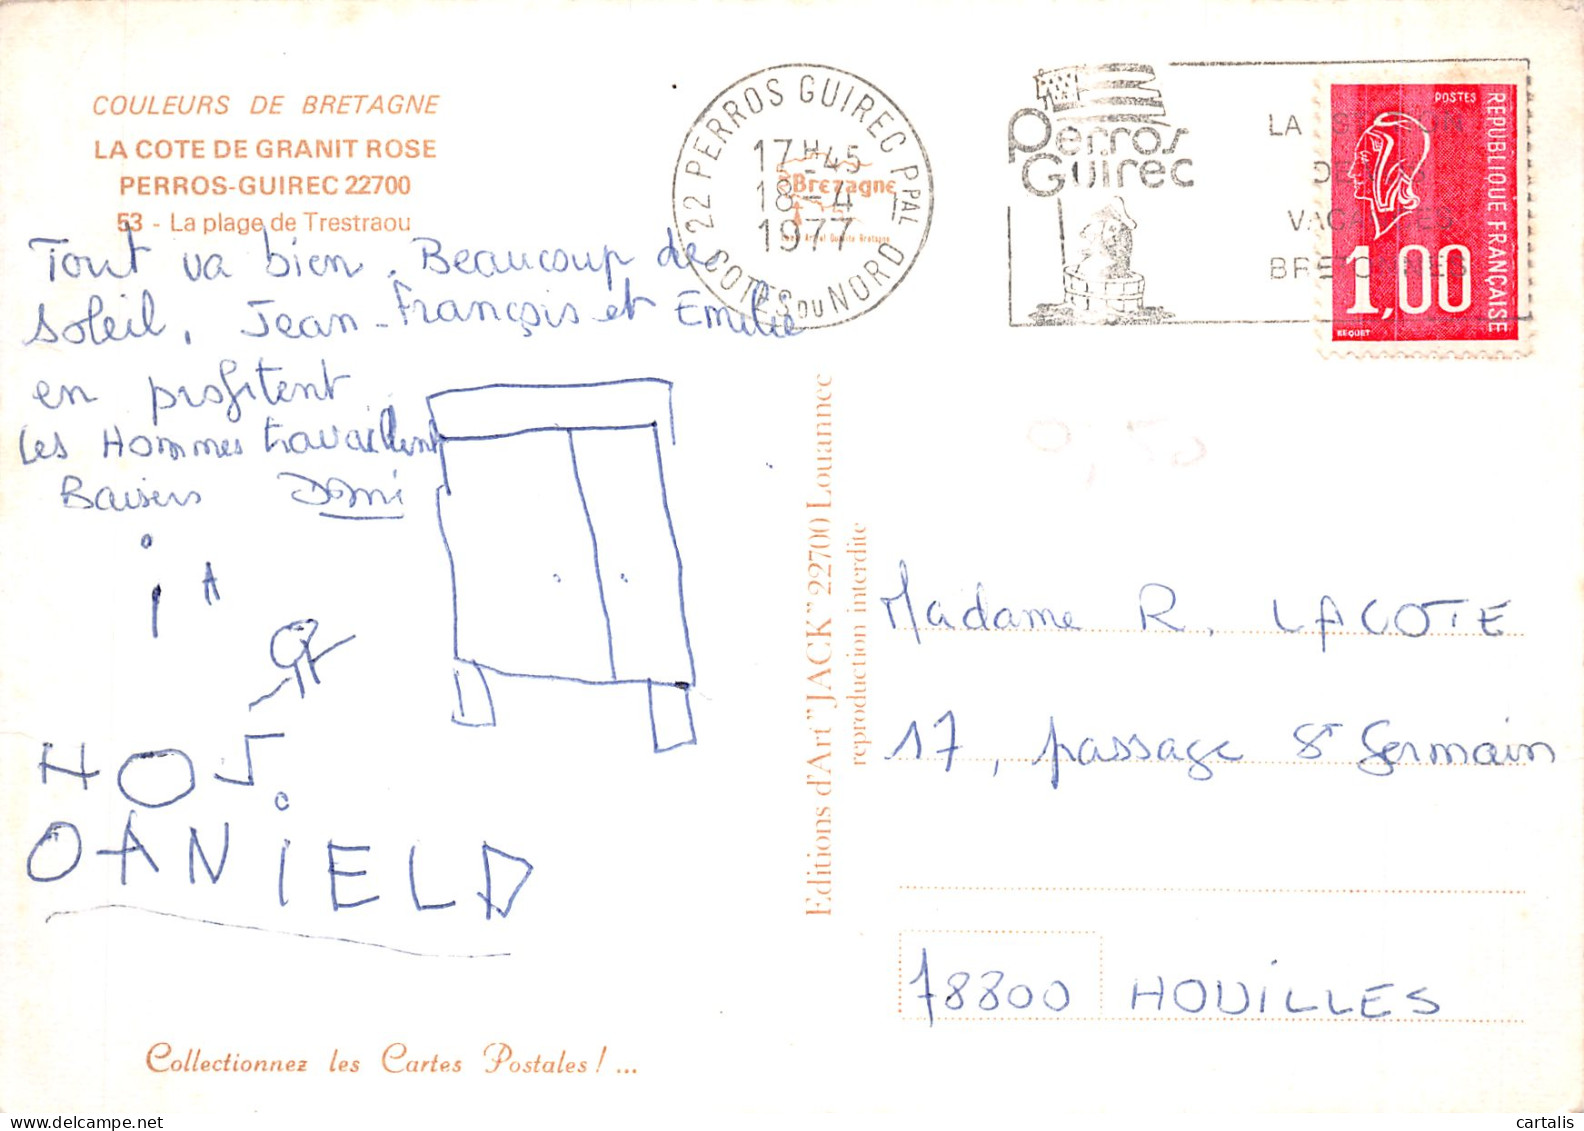 COULEURS DE BRETAGNE
LA COTE DE GRANIT ROSE
PERROS-GUIREC 22700
53 - La plage de Trestraou
Tout va bien. Beaucoup de
soleil, Jean-François et Emilie
en profitent
Les Hommes travaillent
Baisers Domi
i A
HO
DANIEL
Collectionnez les Cartes Postales ! ...
22 PERROS GUIREC PPAL
COTES DU NORD
17H45
18-4
1977
Bretagne
Perros
Guirec
LA
VACANCES
BRETONNES
POSTES
REPUBLIQUE FRANÇAISE
1,00
BEQUET
Editions d'Art "JACK" 22700 Louannec
reproduction interdite
Madame R. LACOTE
17, passage St Germain
78800 HOUILLES
cartalis